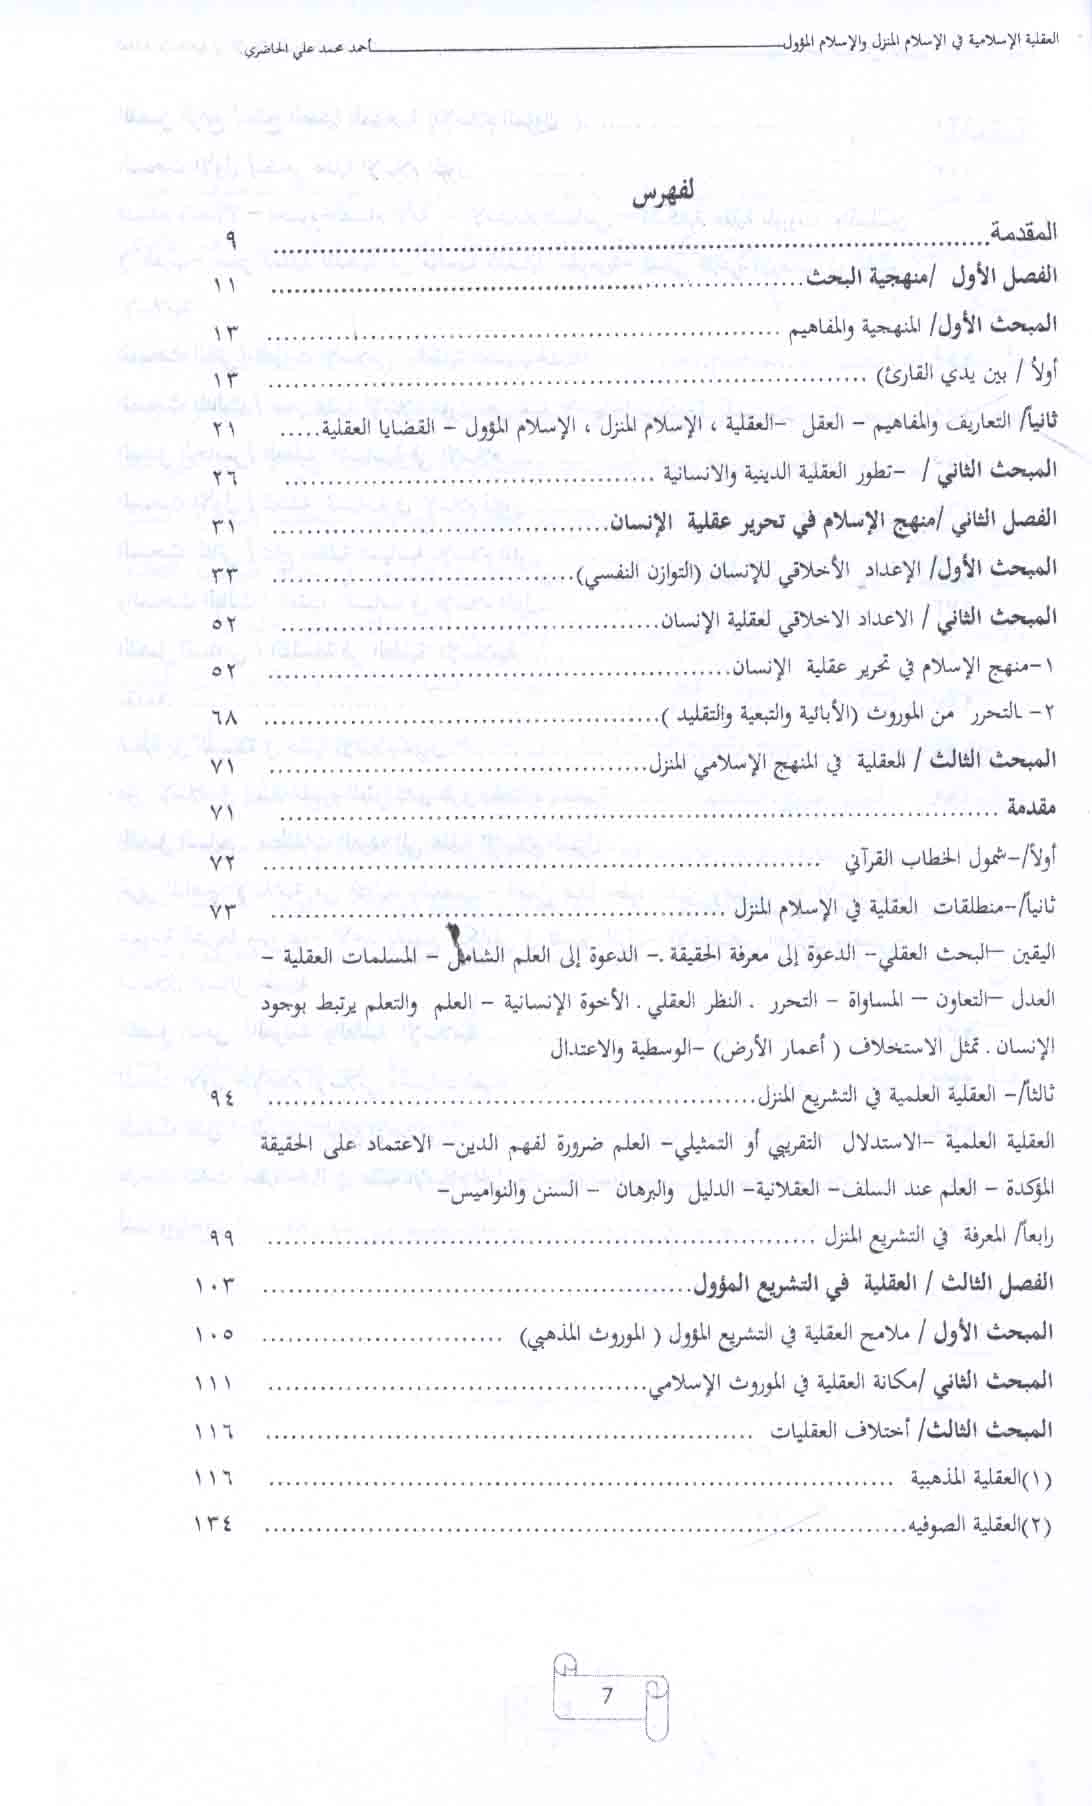 العقلية الإسلامية في الإسلام المنزل والإسلام المؤول أحمد محمد علي الحاضري
لفهرس
المقدمة ................ ٩
الفصل الأول /منهجية البحث ................ ١١
المبحث الأول/ المنهجية والمفاهيم ................ ١٣
أولاً / بين يدي القارئ) ................ ١٣
ثانياً/ التعاريف والمفاهيم – العقل –العقلية ، الإسلام المنزل ، الإسلام المؤول – القضايا العقلية ..... ٢١
المبحث الثاني / –تطور العقلية الدينية والانسانية ................ ٢٦
الفصل الثاني /منهج الإسلام في تحرير عقلية الإنسان ................ ٣١
المبحث الأول/ الإعداد الأخلاقي للإنسان (التوازن النفسي) ................ ٣٣
المبحث الثاني / الاعداد الاخلاقي لعقلية الإنسان ................ ٥٢
١–منهج الإسلام في تحرير عقلية الإنسان ................ ٥٢
٢– التحرر من الموروث (الأبائية والتبعية والتقليد ) ................ ٦٨
المبحث الثالث / العقلية في المنهج الإسلامي المنزل ................ ٧١
مقدمة ................ ٧١
أولاً/–شمول الخطاب القرآني ................ ٧٢
ثانياً/–منطلقات العقلية في الإسلام المنزل ................ ٧٣
اليقين –البحث العقلي– الدعوة إلى معرفة الحقيقة .– الدعوة إلى العلم الشامل – المسلمات العقلية –
العدل –التعاون – المساواة – التحرر . النظر العقلي . الأخوة الإنسانية – العلم والتعلم يرتبط بوجود
الإنسان . تمثل الاستخلاف ( أعمار الأرض) –الوسطية والاعتدال
ثالثاً/– العقلية العلمية في التشريع المنزل ................ ٩٤
العقلية العلمية –الاستدلال التقريبي أو التمثيلي– العلم ضرورة لفهم الدين– الاعتماد على الحقيقة
المؤكدة – العلم عند السلف– العقلانية– الدليل والبرهان – السنن والنواميس–
رابعاً/ المعرفة في التشريع المنزل ................ ٩٩
الفصل الثالث / العقلية في التشريع المؤول ................ ١٠٣
المبحث الأول / ملامح العقلية في التشريع المؤول ( الموروث المذهبي) ................ ١٠٥
المبحث الثاني /مكانة العقلية في الموروث الإسلامي ................ ١١١
المبحث الثالث/ أختلاف العقليات ................ ١١٦
(١)العقلية المذهبية ................ ١١٦
(٢)العقلية الصوفيه ................ ١٣٤
7